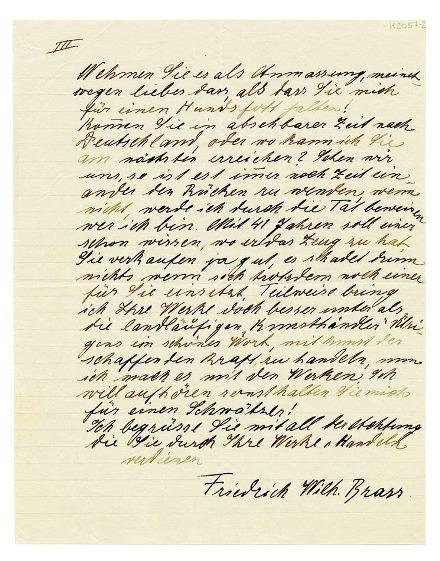 K2057-2
III
Nehmen Sie es als Anmassung, meinet
wegen lieber das, als dass Sie mich
für einen Hundsfott halten!
Können Sie in absehbarer Zeit nach
Deutschland, oder wo kann ich Sie
am nächsten erreichen? Sehen wir
uns, so ist est immer noch Zeit ein
ander den Rücken zu wenden, wenn
nicht, werde ich durch die Tat beweisen
wer ich bin. Mit 41 Jahren soll einer
schon wissen, wo er das Zeug zu hat.
Sie verkaufen ja gut, es schadet drum
nichts, wenn sich trotzdem noch einer
für Sie einsetzt. Teilweise bring
ich Ihre Werke doch besser unter als
die landläufigen "Kunsthändler" Übri-
gens ein schönes Wort, mit Kunst der
schaffenden Kraft zu handeln, nun
ich mach es mit den Werken. Ich
will aufhören sonst halten Sie mich
für einen Schwätzer!
Ich begrüsse Sie mit all der Achtung
die Sie durch Ihre Werke + Handeln
verdienen
Friedrich Wilh. Brass.